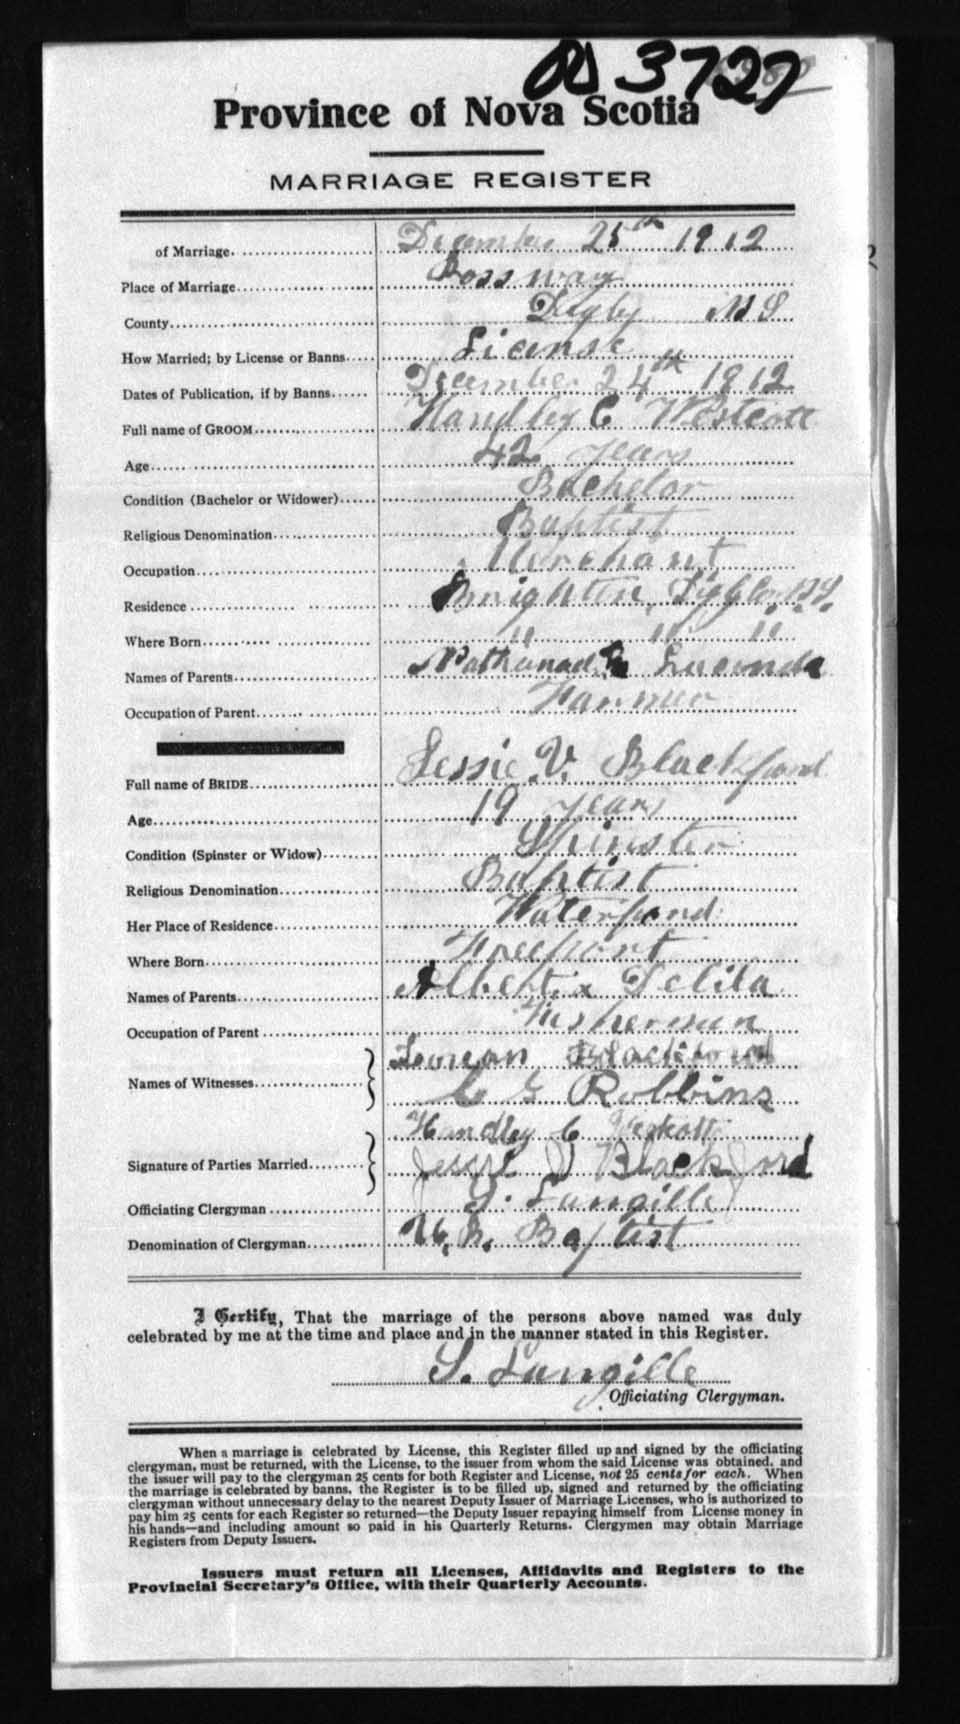 3727
Province of Nova Scotia
MARRIAGE REGISTER
of Marriage. December 25th 1912
Place of Marriage. Rossway
County. Digby N S
How Married; by License or Banns. License
Dates of Publication, if by Banns. December 24th 1912
Full name of GROOM. Handley C Westcott
Age. 42 years
Condition (Bachelor or Widower). Bachelor
Religious Denomination. Baptist
Occupation. Merchant
Residence Brighton, Digby Co. N.S.
Where Born. " " "
Names of Parents. Lucinda
Occupation of Parent. Farmer
Full name of BRIDE. Jessie V. Blackford
Age. 19 years
Condition (Spinster or Widow). Spinster
Religious Denomination. Baptist
Her Place of Residence. Waterford
Where Born. Freeport
Names of Parents. Albert & Delila
Occupation of Parent Fisherman
Names of Witnesses. Blackford
C G Robbins
Handley C Westcott
Signature of Parties Married. Jessie V Blackford
Officiating Clergyman S. Langille
Denomination of Clergyman. U. B. Baptist
I Certify, That the marriage of the persons above named was duly
celebrated by me at the time and place and in the manner stated in this Register.
S. Langille
Officiating Clergyman.
When a marriage is celebrated by License, this Register filled up and signed by the officiating
clergyman, must be returned, with the License, to the issuer from whom the said License was obtained, and
the issuer will pay to the clergyman 25 cents for both Register and License, not 25 cents for each. When
the marriage is celebrated by banns, the Register is to be filled up, signed and returned by the officiating
clergyman without unnecessary delay to the nearest Deputy Issuer of Marriage Licenses, who is authorized to
pay him 25 cents for each Register so returned—the Deputy Issuer repaying himself from License money in
his hands—and including amount so paid in his Quarterly Returns. Clergymen may obtain Marriage
Registers from Deputy Issuers.
Issuers must return all Licenses, Affidavits and Registers to the
Provincial Secretary's Office, with their Quarterly Accounts.